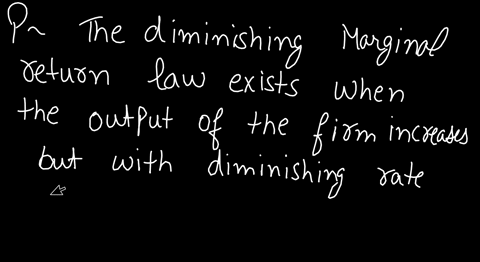 Q~ The diminishing Marginal
return law exists when
the output of the firm increases
but with diminishing rate